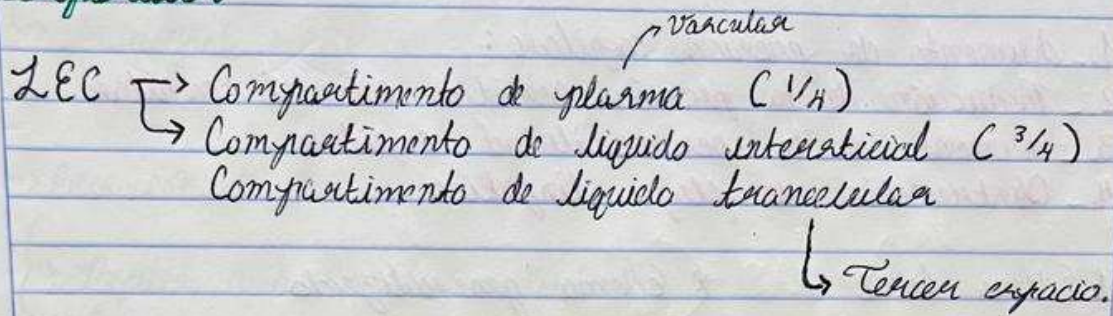 vascular
LEC → Compartimento de plasma (1/4)
↳ Compartimento de liquido intersticial (3/4)
Compartimento de liquido trancelular
↳ Tercer espacio.